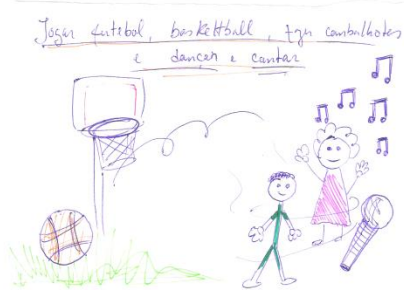 Jogar futebol, baskettball, fazer cambalhotas
e dançar e cantar